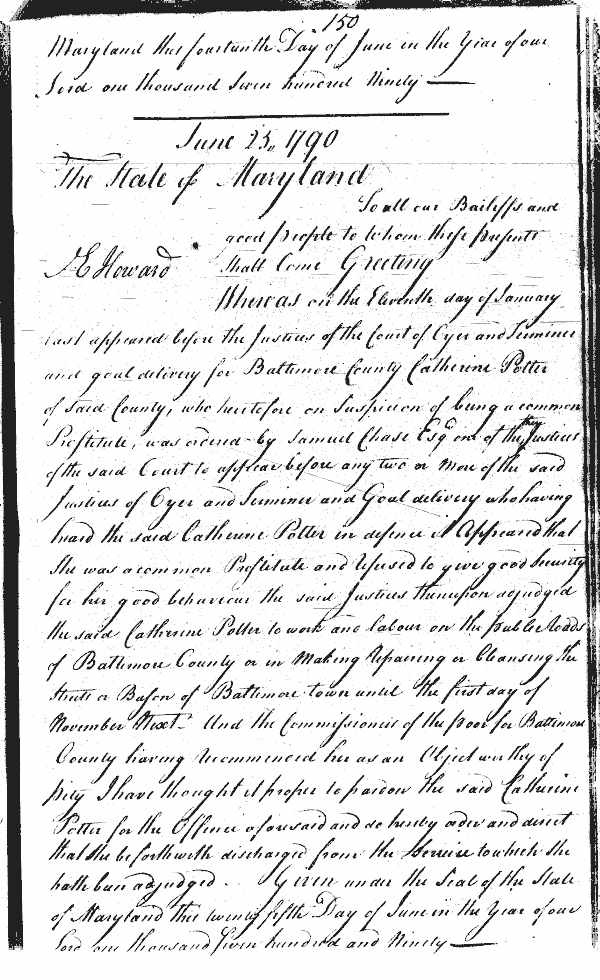 150
Maryland this fourteenth Day of June in the Year of our
Lord one thousand seven hundred Ninety
June 25,, 1790
The State of Maryland
To all our Bailiffs and
good people to whom these presents
J E Howard
shall Come Greeting
Whereas on the Eleventh day of January
last appeared before the Justices of the Court of Oyer and Terminer
and goal delivery for Baltimore County Catherine Potter
of said County, who heretofore on Suspicion of being a common
Prostitute, was ordered by Samuel Chase Esqr. one of the Justices
of the said Court to appear before any two or More of the said
Justices of Oyer and Terminer and Goal delivery who having
heard the said Catherine Potter in defence it Appeared that
She was a common Prostitute and refused to give good Security
for her good behaviour the said Justices thereupon adjudged
the said Catherine Potter to work and labour on the public Roads
of Baltimore County or in Making Repairing or Cleansing the
Streets or Bason of Baltimore town until the first day of
November Next And the Commissioners of the poor for Baltimore
County having recommended her as an Object worthy of
pity I have thought it proper to pardon the said Catherine
Potter for the Offence aforesaid and do hereby order and direct
that She be forthwith discharged from the Service to which She
hath been adjudged. Given under the Seal of the State
of Maryland this twenty fifth Day of June in the Year of our
Lord one thousand Seven hundred and Ninety